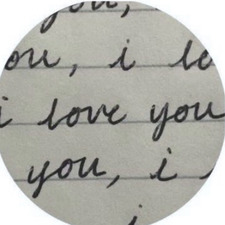 you,
you, i lo
i love you
you, i
i